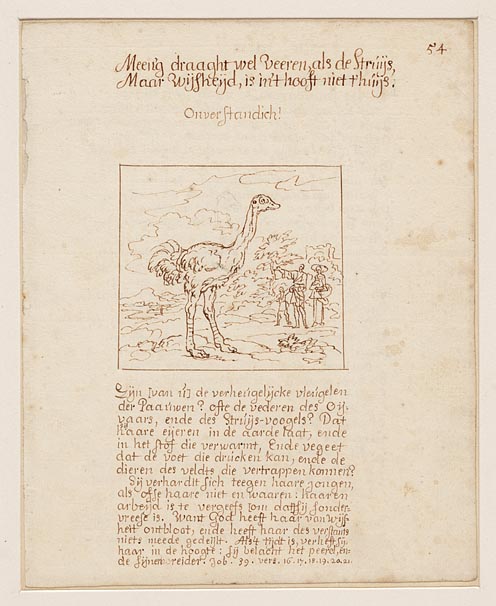 54
Meenig draaght wel Veeren, als de Struijs,
Maar Wijsheijd, is in't hooft niet t'huijs.
Onverstandich!
Zijn [van u] de verheugelijcke vleugelen
der Paauwen? ofte de vederen des Oij-
vaars, ende des Struijs-voogels? Dat
haare eijeren in de aarde laat, ende
in het stof die verwarmt, Ende vegeet
dat de voet die drucken kan, ende de
dieren des veldts die vertrappen konnen?
Sij verhardt sich teegen haare jongen,
als ofse haare niet en waaren: haaren
arbeijd is te vergeefs, om datsij sonder
vreese is. Want God heeft haar van wijs-
heit ontbloot, ende heeft haar des verstants
niets meede gedeijlt. Als't tijdt is, verheft sij
haar in de hoogte: sij belacht het peerd, en-
de sijnen reider. Job. 39. vers. 16. 17. 18. 19. 20. 21.